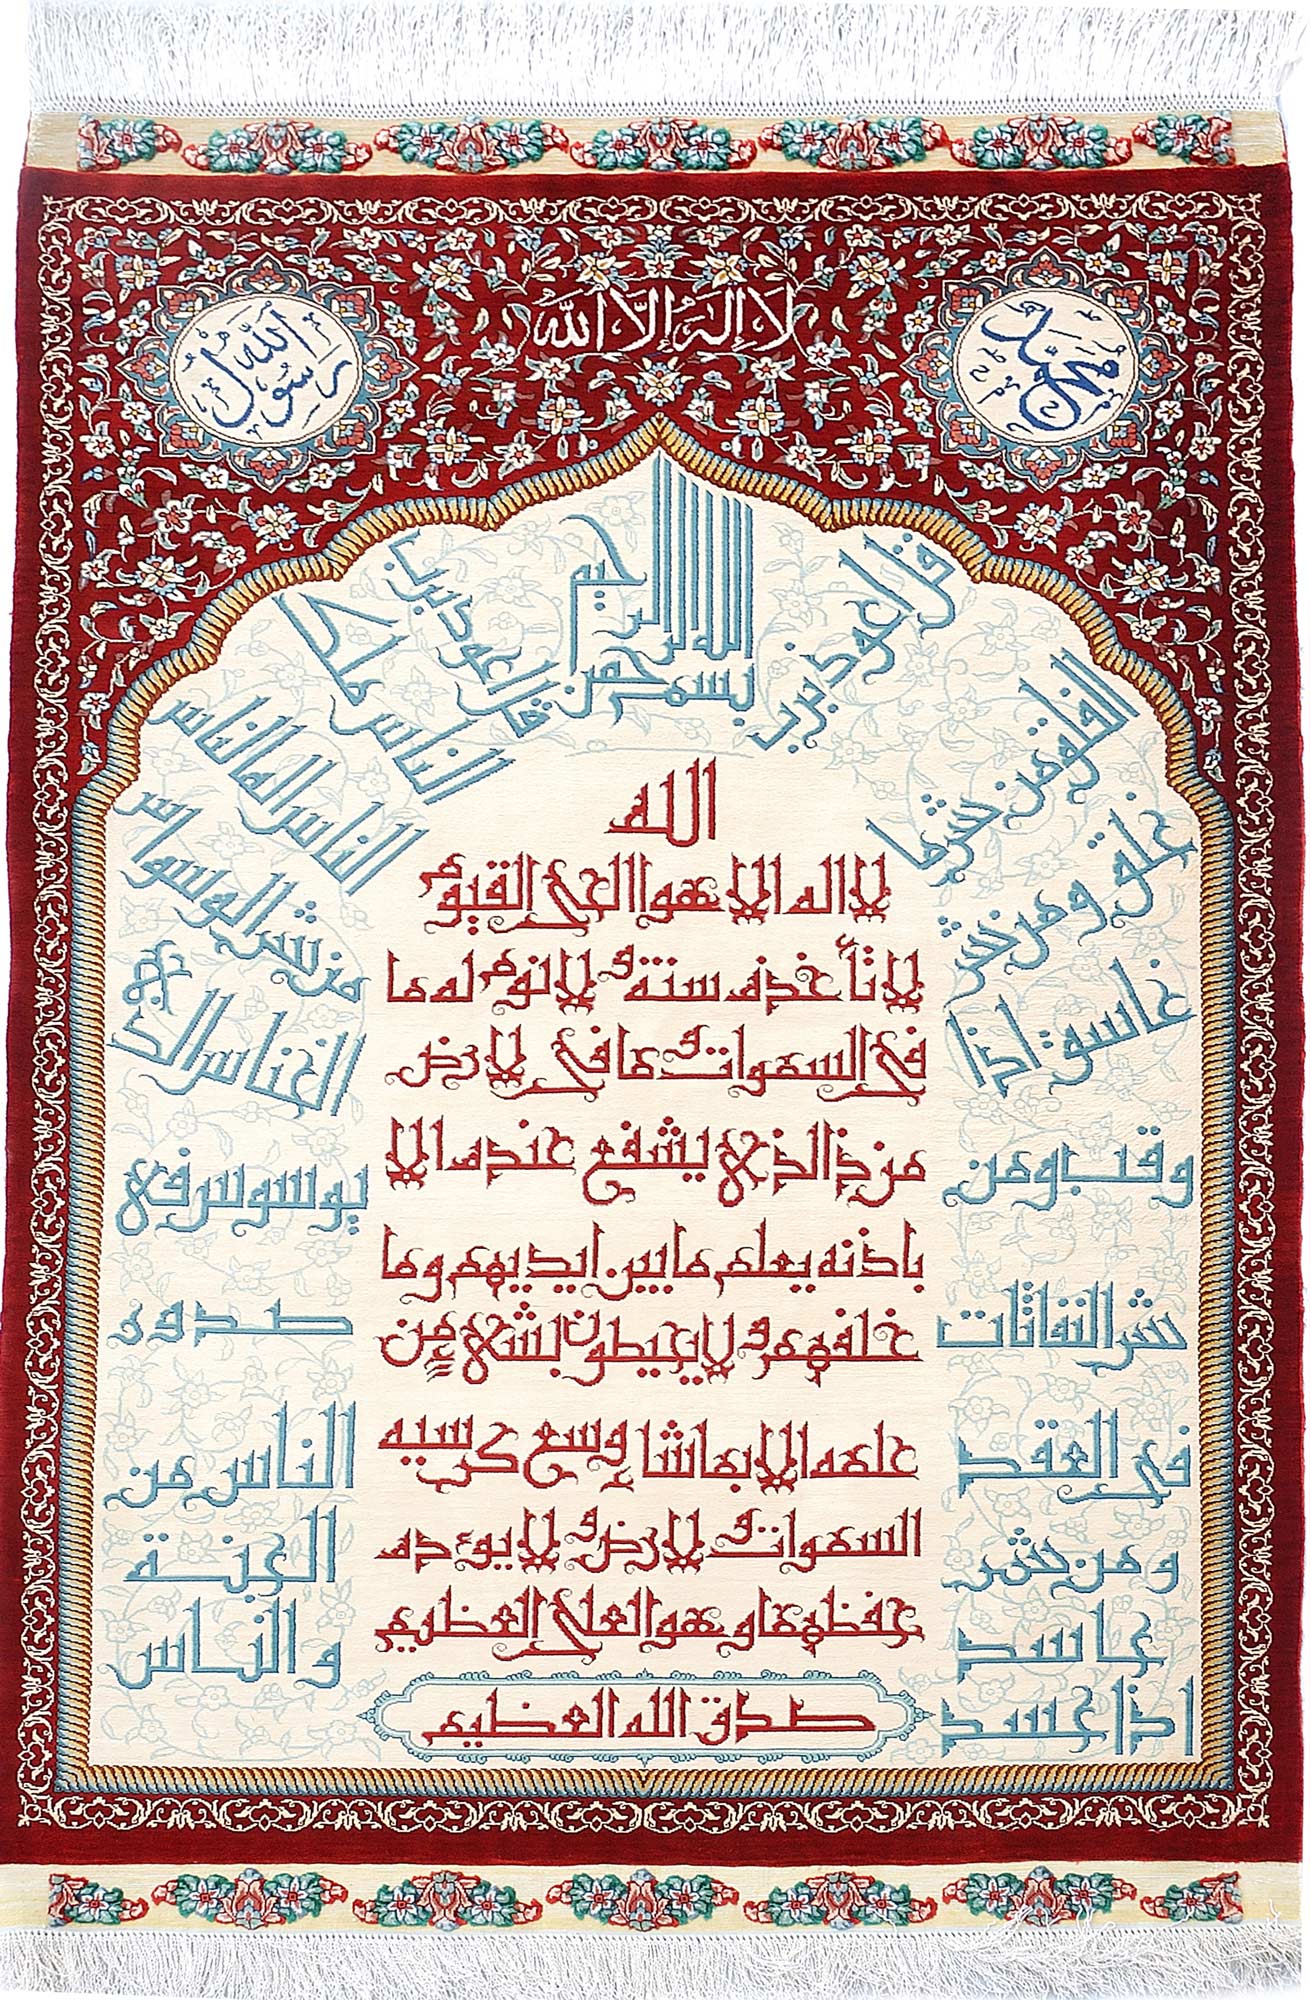 لا إله إلا الله
محمد
رسول الله
بسم الله الرحمن الرحيم
قل اعوذ برب
الفلق من شر ما
خلق و من شر
غاسق اذا
وقب و من
شر النفاثات
في العقد
و من شر
حاسد
اذا حسد
قل اعوذ برب
الناس ملك
الناس اله الناس
من شر الوسواس
الخناس الذي
يوسوس في
صدور
الناس من
الجنة
و الناس
الله
لا اله الا هو الحي القيوم
لا تأخذه سنة و لا نوم له ما
في السموات و ما في لارض
من ذالذي يشفع عنده الا
باذنه يعلم ما بين ايديهم و ما
خلفهم و لا يحيطون بشيءٍ من
علمه الا بما شا وسع كرسيه
السموات و لارض و لا يوده
حفظهما و هو العلي العظيم
صدق الله العظيم